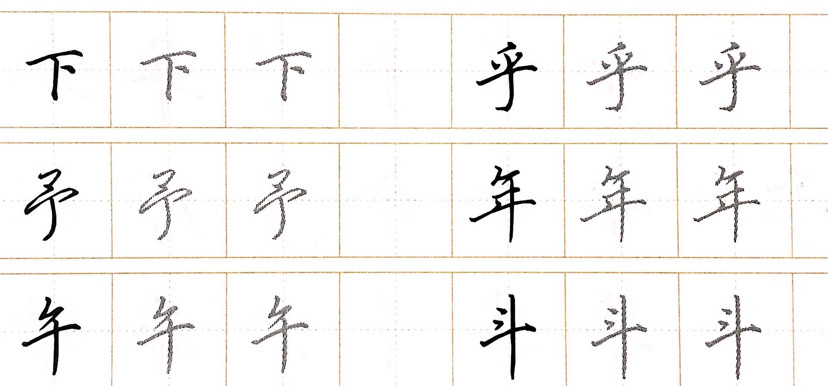 下 下 下 乎 乎 乎
予 予 予 年 年 年
午 午 午 斗 斗 斗